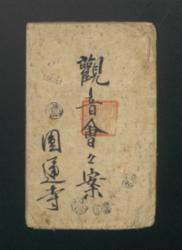 觀音會々案
圓通寺